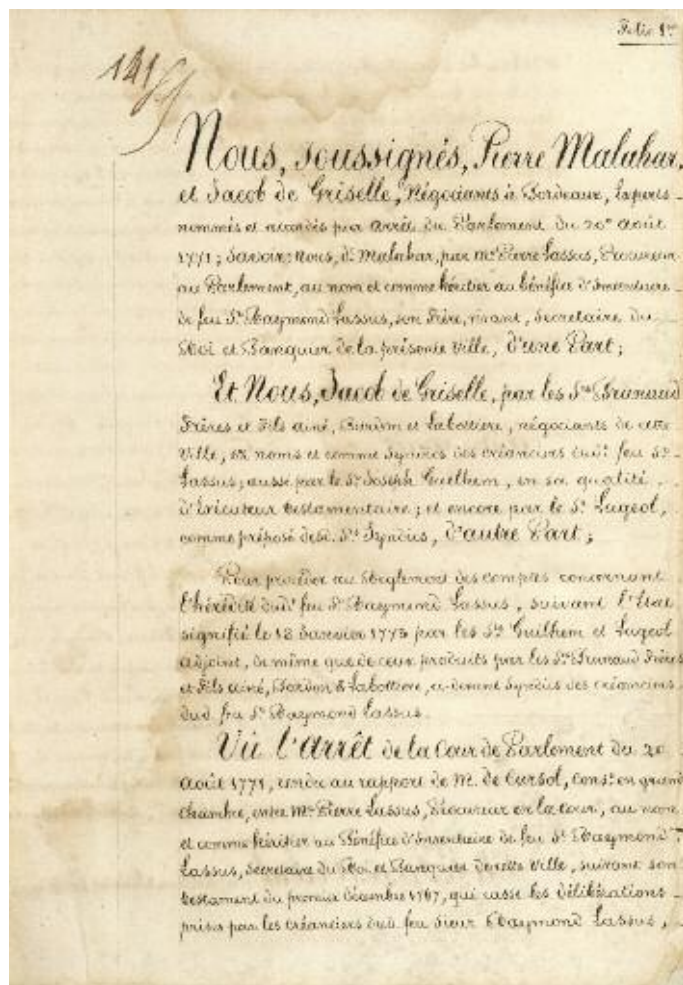 Folio 1er
141
Nous, soussignés, Pierre Malahar,
et Jacob de Griselle, Négociants à Bordeaux, Experts
nommés et accordés par arrêt du Parlement du 20e août
1771; Savoir: Nous, dt. Malahar, par Me. Pierre Lassus, Procureur
au Parlement, au nom et comme héritier au bénéfice d'Inventaire
de feu Sr. Raymond Lassus, son Frère, vivant, Secretaire du
Roi et Banquier de la présente Ville, d'une Part;
Et Nous, Jacob de Griselle, par les Srs. Brunaud
Frères et Fils ainé, et Labottiere, négociants de cette
Ville, ès noms et comme Syndics des créanciers dud. feu Sr.
Lassus; aussi par le Sr. Joseph Guilhem, en sa qualité
d'Exécuteur testamentaire; et encore par le Sr. Lugeol,
comme préposé desd. Srs. Syndics, d'autre Part;
Pour procéder au Reglement des comptes concernant
l'hérédité dud. feu Sr. Raymond Lassus, suivant l'Etat
signifié le 18 Janvier 1773 par les Srs. Guilhem et Lugeol
adjoint, de même que de ceux produits par les Srs. Brunaud Frères
et Fils ainé, & Labottiere, ci-devant Syndics des créanciers
dud. feu Sr. Raymond Lassus.
Vû l'Arrêt de la Cour de Parlement du 20
Août 1771, rendu au rapport de M. de Cursol, Conser. en grand
Chambre, entre Me. Pierre Lassus, Procureur en la Cour, au nom
et comme héritier au Bénéfice d'Inventaire de feu Sr. Raymond
Lassus, Secretaire du Roi et Banquier de cette Ville, suivant son
testament du premier décembre 1767, qui casse les délibérations
prises par les créanciers dud. feu Sieur Raymond Lassus,